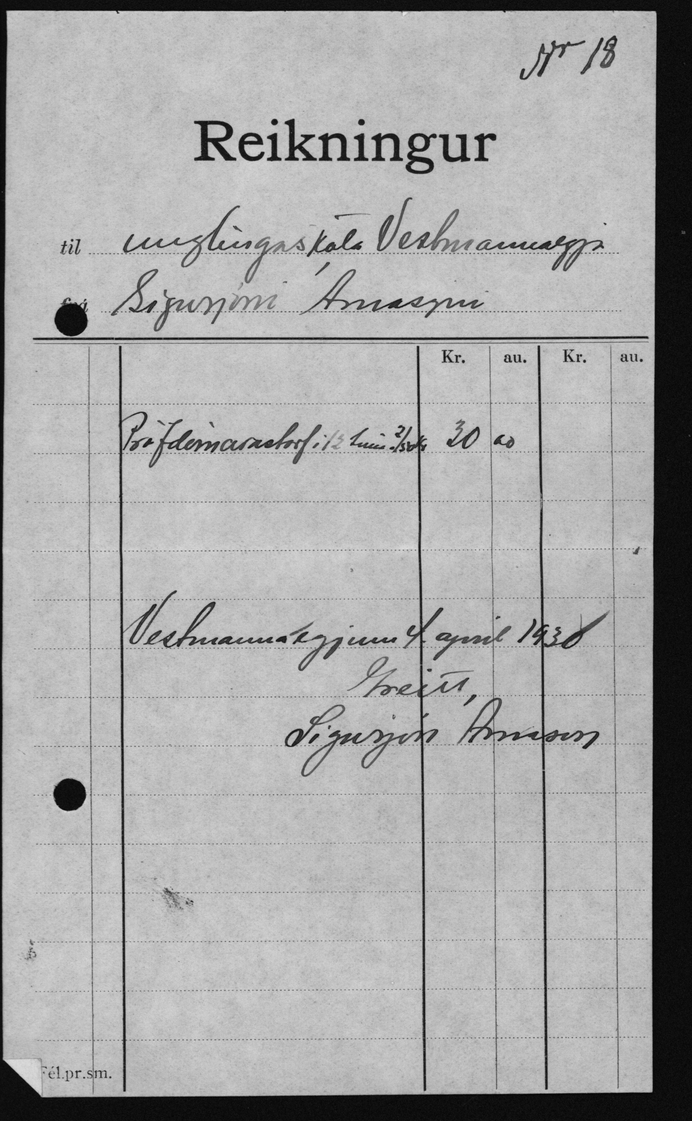 Nr 18
Reikningur
til unglingaskóla Vestmannaeyja
frá Sigurjóni Árnasyni
Kr. au. Kr. au.
Prófdómarastörf í 12 30 00
Vestmannaeyjum 4. apríl 1930
Greitt,
Sigurjón Árnason
Fél.pr.sm.